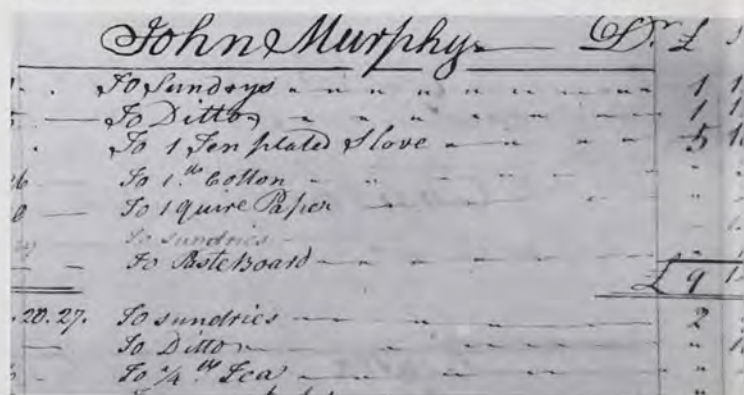 John Murphy Dr £
To Sundrys 1
5 — To Ditto 1
To 1 Ten plated Stove 5
26 — To 1 lb Cotton
— To 1 quire Paper
To sundries
To PasteBoard
£ 9
.20.27. To sundries 2
— To Ditto
To 1/4 lb Tea